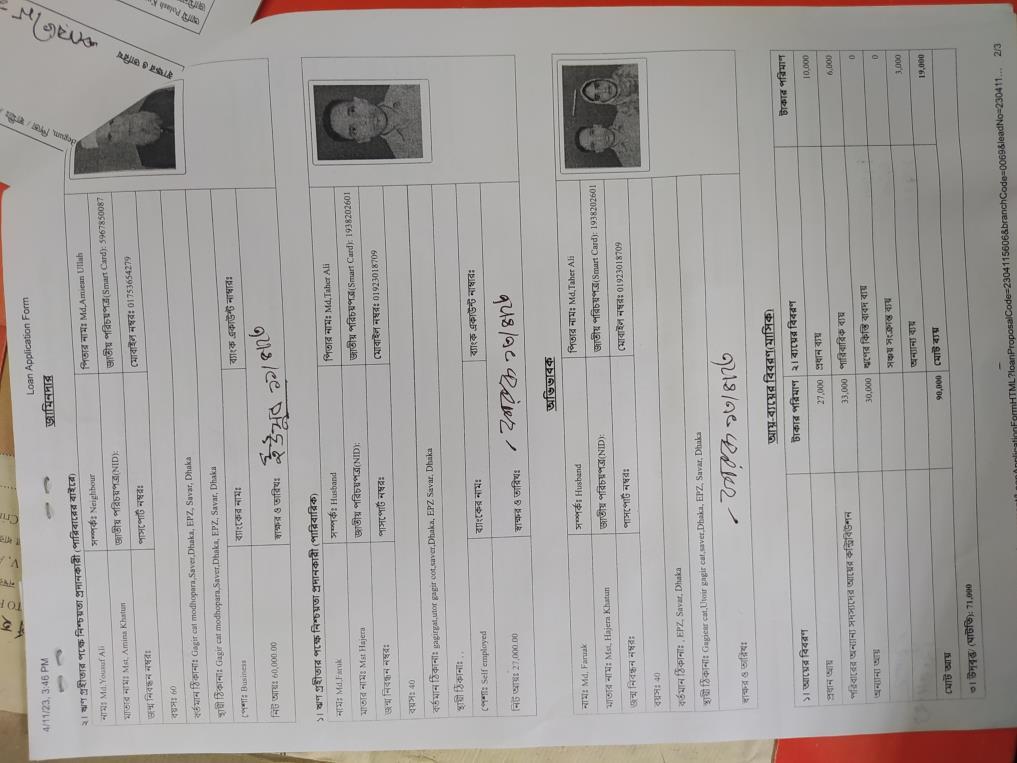 4/11/23, 3:46 PM
Loan Application Form
জামিনদার
২। ঋণ গ্রহীতার পক্ষে নিশ্চয়তা প্রদানকারী (পারিবারের বাইরে)
নাম: Md.Yousuf Ali
সম্পর্ক: Neighbour
পিতার নাম: Md,Amiean Ullah
মাতার নাম: Mst, Amina Khatun
জাতীয় পরিচয়পত্র(NID):
জাতীয় পরিচয়পত্র(Smart Card): 5967850087
জন্ম নিবন্ধন নম্বর:
পাসপোর্ট নম্বর:
মোবাইল নম্বর: 01753654279
বয়স: 60
বর্তমান ঠিকানা: Gagir cat modhopara,Saver,Dhaka, EPZ, Savar, Dhaka
স্থায়ী ঠিকানা: Gagir cat modhopara,Saver,Dhaka, EPZ, Savar, Dhaka
পেশা: Business
ব্যাংকের নাম:
ব্যাংক একাউন্ট নাম্বার:
নিট আয়: 60,000.00
স্বাক্ষর ও তারিখ:
১। ঋণ গ্রহীতার পক্ষে নিশ্চয়তা প্রদানকারী (পারিবারিক)
নাম: Md.Faruk
সম্পর্ক: Husband
পিতার নাম: Md,Taher Ali
মাতার নাম: Mst Hajera
জাতীয় পরিচয়পত্র(NID):
জাতীয় পরিচয়পত্র(Smart Card): 1938202601
জন্ম নিবন্ধন নম্বর:
পাসপোর্ট নম্বর:
মোবাইল নম্বর: 01923018709
বয়স: 40
বর্তমান ঠিকানা: gagirgat,utor gagir cot,saver,Dhaka, EPZ Savar, Dhaka
স্থায়ী ঠিকানা: . .
পেশা: Self employed
ব্যাংকের নাম:
ব্যাংক একাউন্ট নাম্বার:
নিট আয়: 27,000.00
স্বাক্ষর ও তারিখ:
অভিভাবক
নাম: Md, Faruak
সম্পর্ক: Husband
পিতার নাম: Md,Taher Ali
মাতার নাম: Mst, Hajera Khatun
জাতীয় পরিচয়পত্র(NID):
জাতীয় পরিচয়পত্র(Smart Card): 1938202601
জন্ম নিবন্ধন নম্বর:
পাসপোর্ট নম্বর:
মোবাইল নম্বর: 01923018709
বয়স: 40
বর্তমান ঠিকানা: , EPZ, Savar, Dhaka
স্থায়ী ঠিকানা: Gagiear cat,Utoir gagir cat,saver,Dhaka, EPZ, Savar, Dhaka
স্বাক্ষর ও তারিখ:
আয়-ব্যয়ের বিবরণ(মাসিক)
১। আয়ের বিবরণ টাকার পরিমাণ ২। ব্যয়ের বিবরণ টাকার পরিমাণ
প্রধান আয় 27,000 প্রধান ব্যয় 10,000
পরিবারের অন্যান্য সদস্যদের আয়ের কন্ট্রিবিউশন 33,000 পারিবারিক ব্যয় 6,000
অন্যান্য আয় 30,000 ঋণের কিস্তি বাবদ ব্যয় 0
সঞ্চয় সংক্রান্ত ব্যয় 0
অন্যান্য ব্যয় 3,000
মোট আয় 90,000 মোট ব্যয় 19,000
৩। উদ্বৃত্ত/ (ঘাটতি): 71,000
2/3